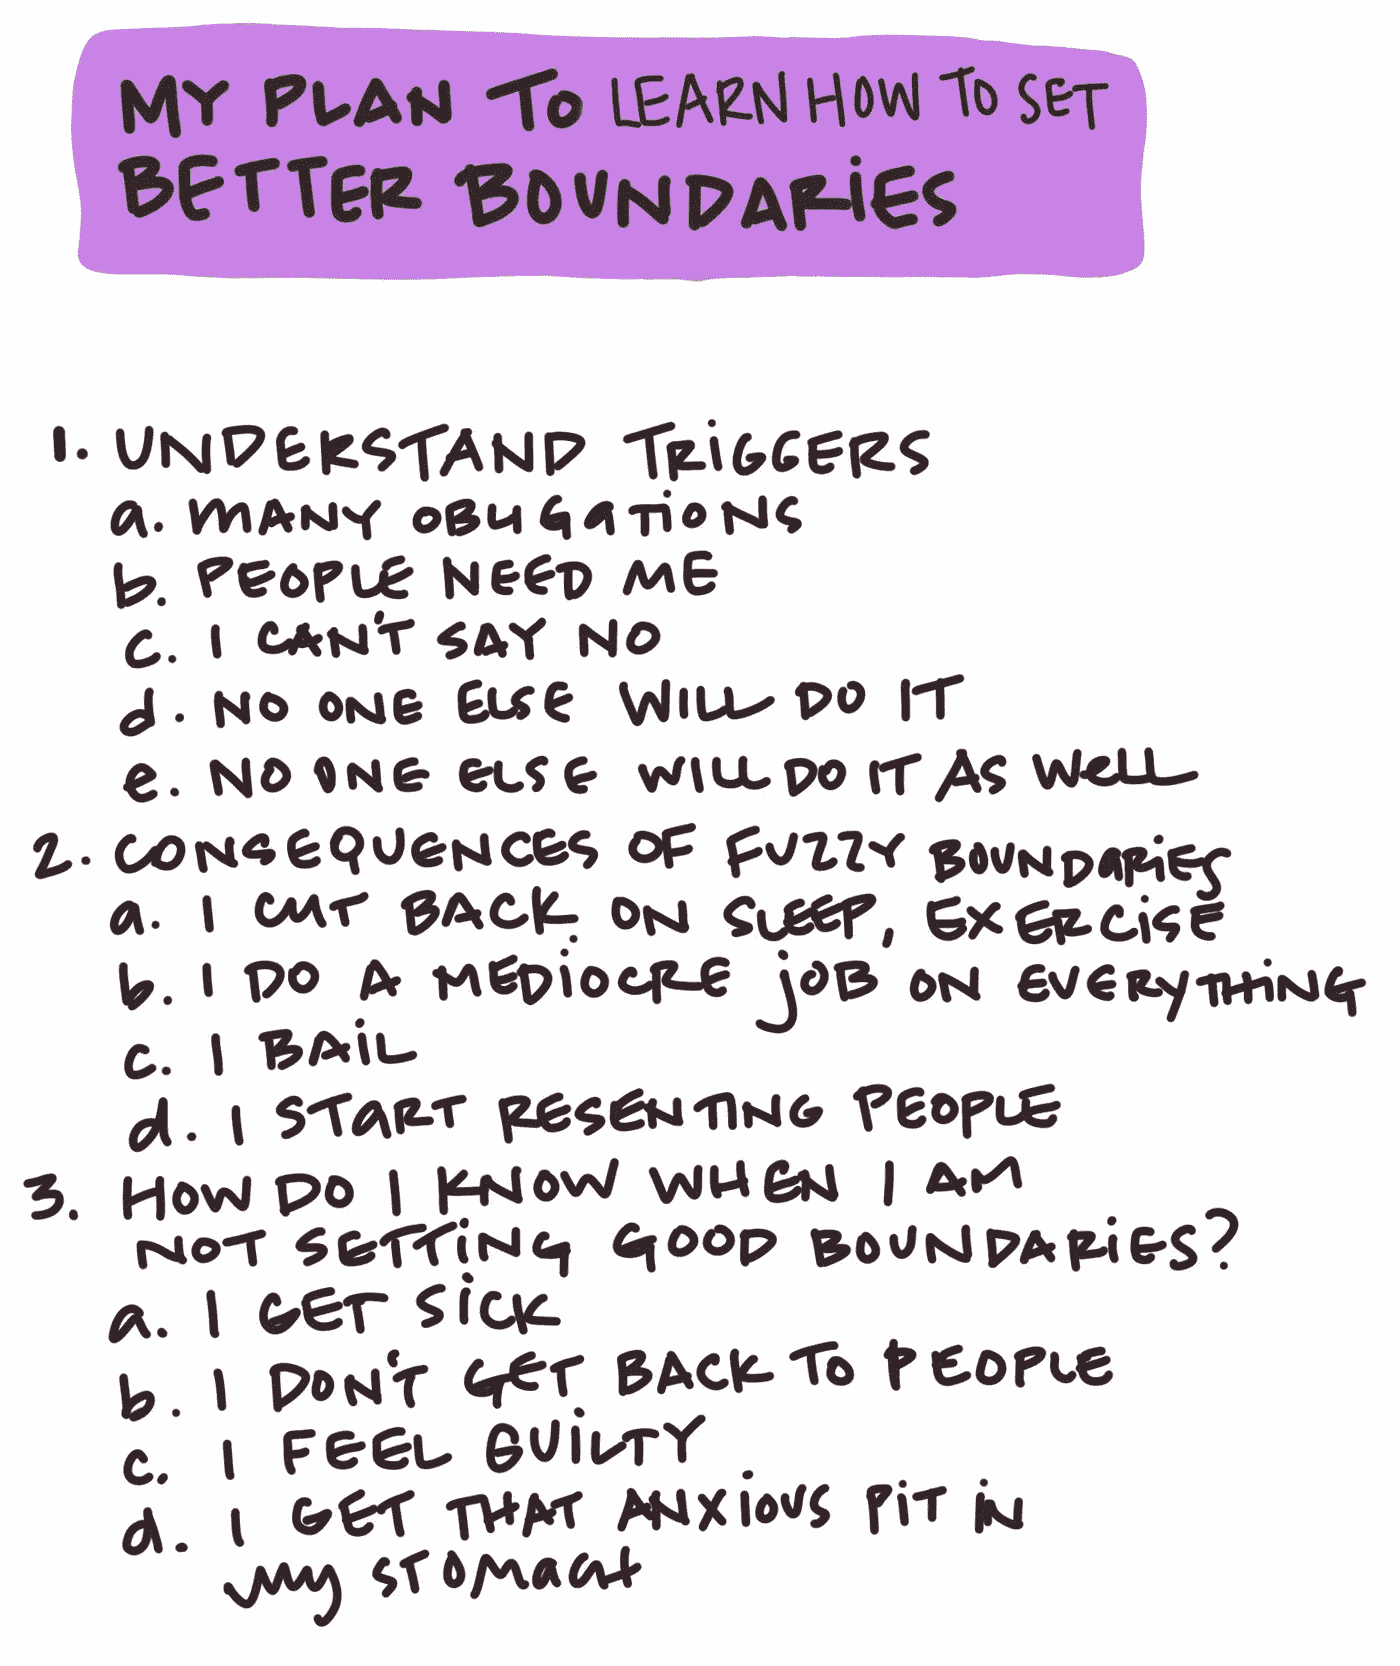 MY PLAN TO LEARN HOW TO SET
BETTER BOUNDARIES
1. UNDERSTAND TRIGGERS
a. MANY OBLIGATIONS
b. PEOPLE NEED ME
c. I CAN'T SAY NO
d. NO ONE ELSE WILL DO IT
e. NO ONE ELSE WILL DO IT AS WELL
2. CONSEQUENCES OF FUZZY BOUNDARIES
a. I CUT BACK ON SLEEP, EXERCISE
b. I DO A MEDIOCRE JOB ON EVERYTHING
c. I BAIL
d. I START RESENTING PEOPLE
3. HOW DO I KNOW WHEN I AM
NOT SETTING GOOD BOUNDARIES?
a. I GET SICK
b. I DON'T GET BACK TO PEOPLE
c. I FEEL GUILTY
d. I GET THAT ANXIOUS PIT IN
MY STOMACH